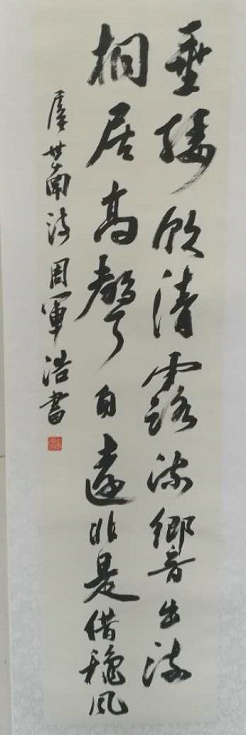 垂緌飲清露流響出疏
桐居高聲自遠非是借穐風
虞世南詩周軍浩書